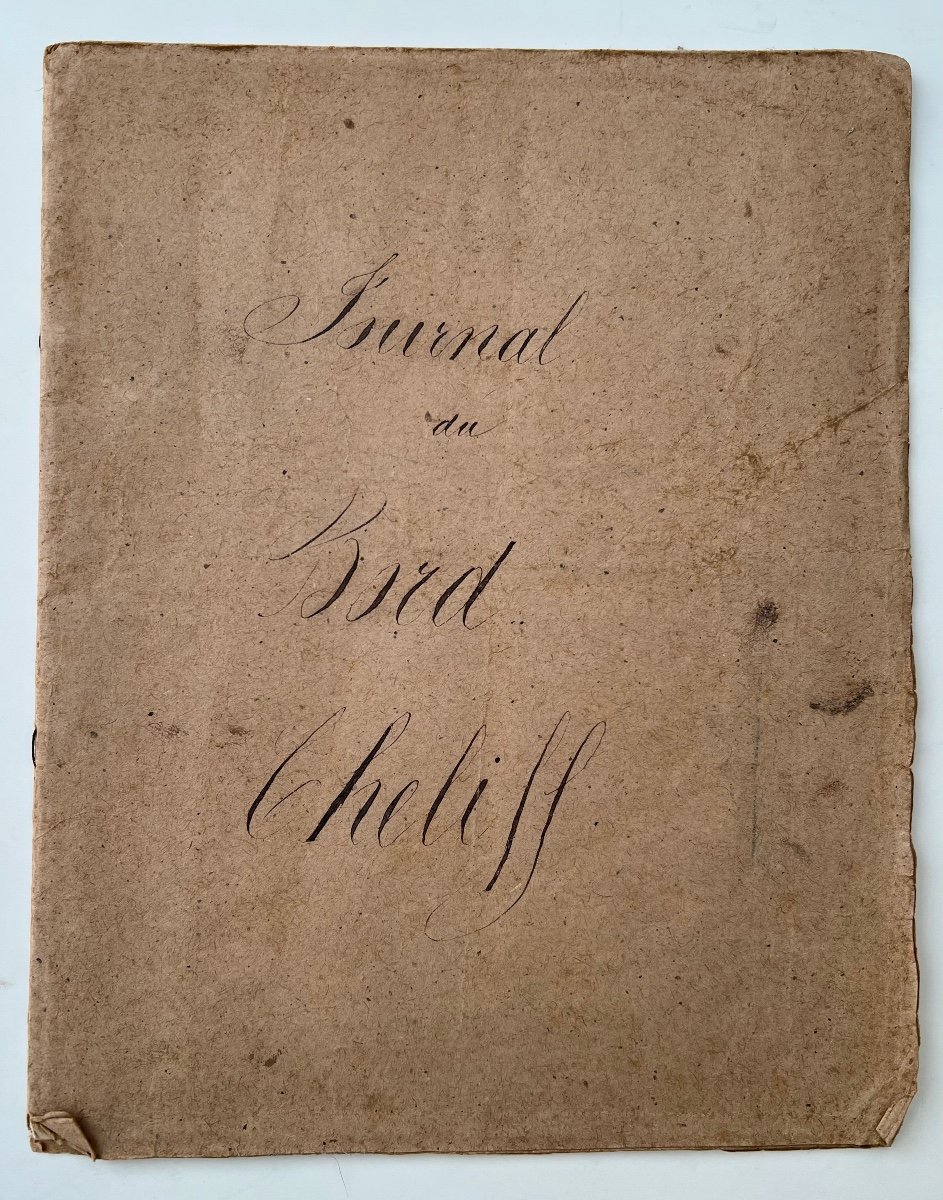 Journal
du
Bord
Cheliff